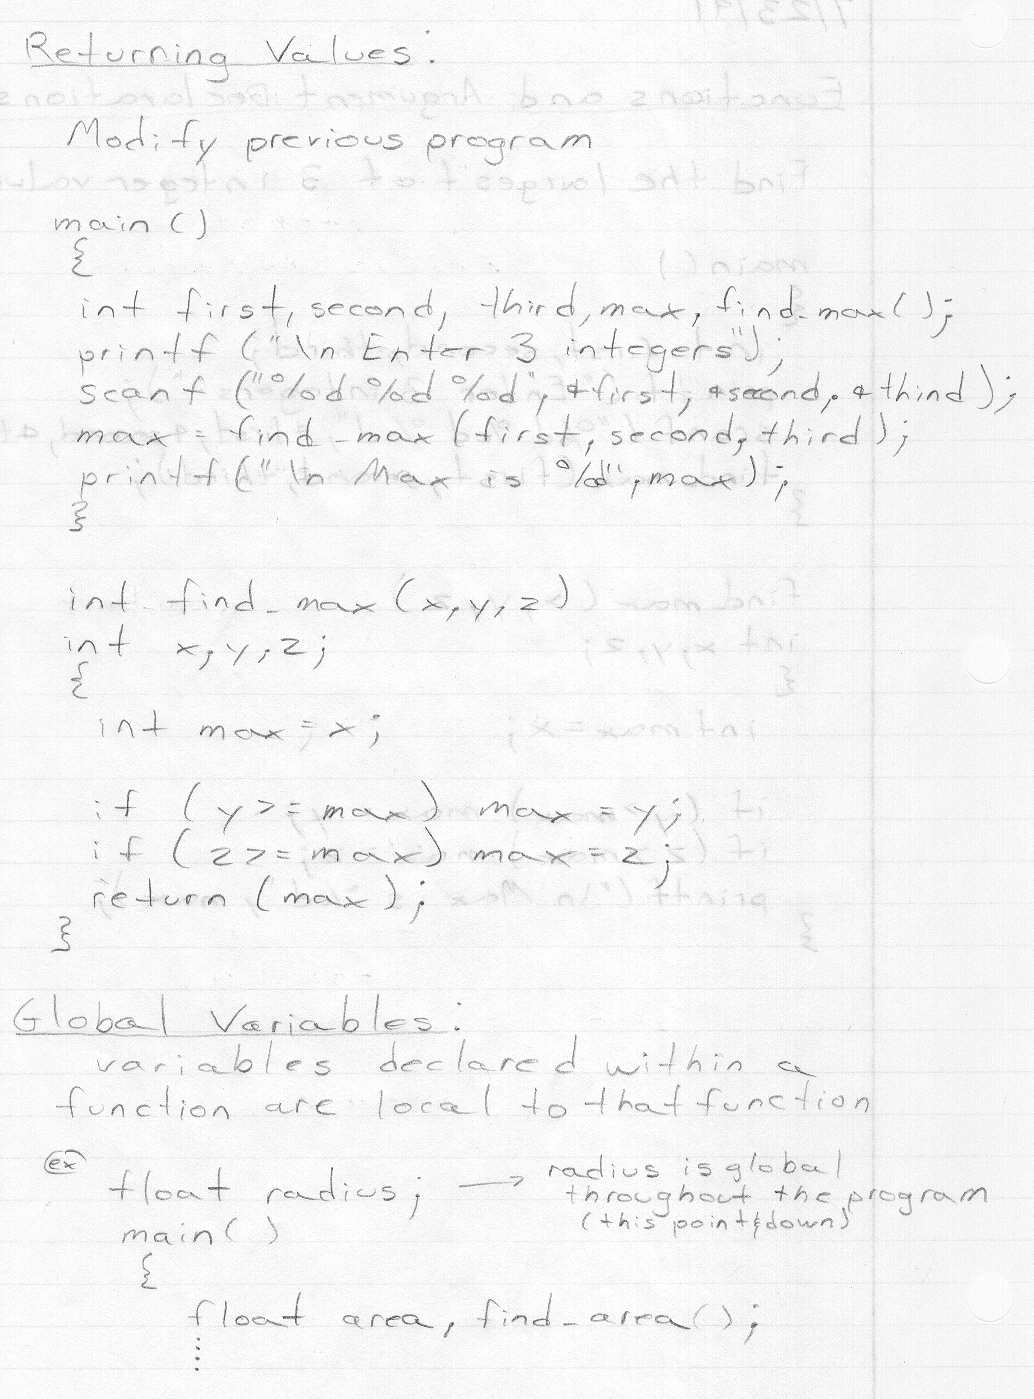 Returning Values:
Modify previous program
main ()
{
int first, second, third, max, find_max();
printf ("\n Enter 3 integers");
scanf ("%d %d %d", &first, &second, &third);
max = find_max (first, second, third);
printf (" \n Max is %d", max);
}
int find_max (x, y, z)
int x, y, z;
{
int max = x;
if (y >= max) max = y;
if (z >= max) max = z;
return (max);
}
Global Variables:
variables declared within a
function are local to that function
ex float radius; → radius is global
throughout the program
(this point & down)
main()
{
float area, find_area();
....